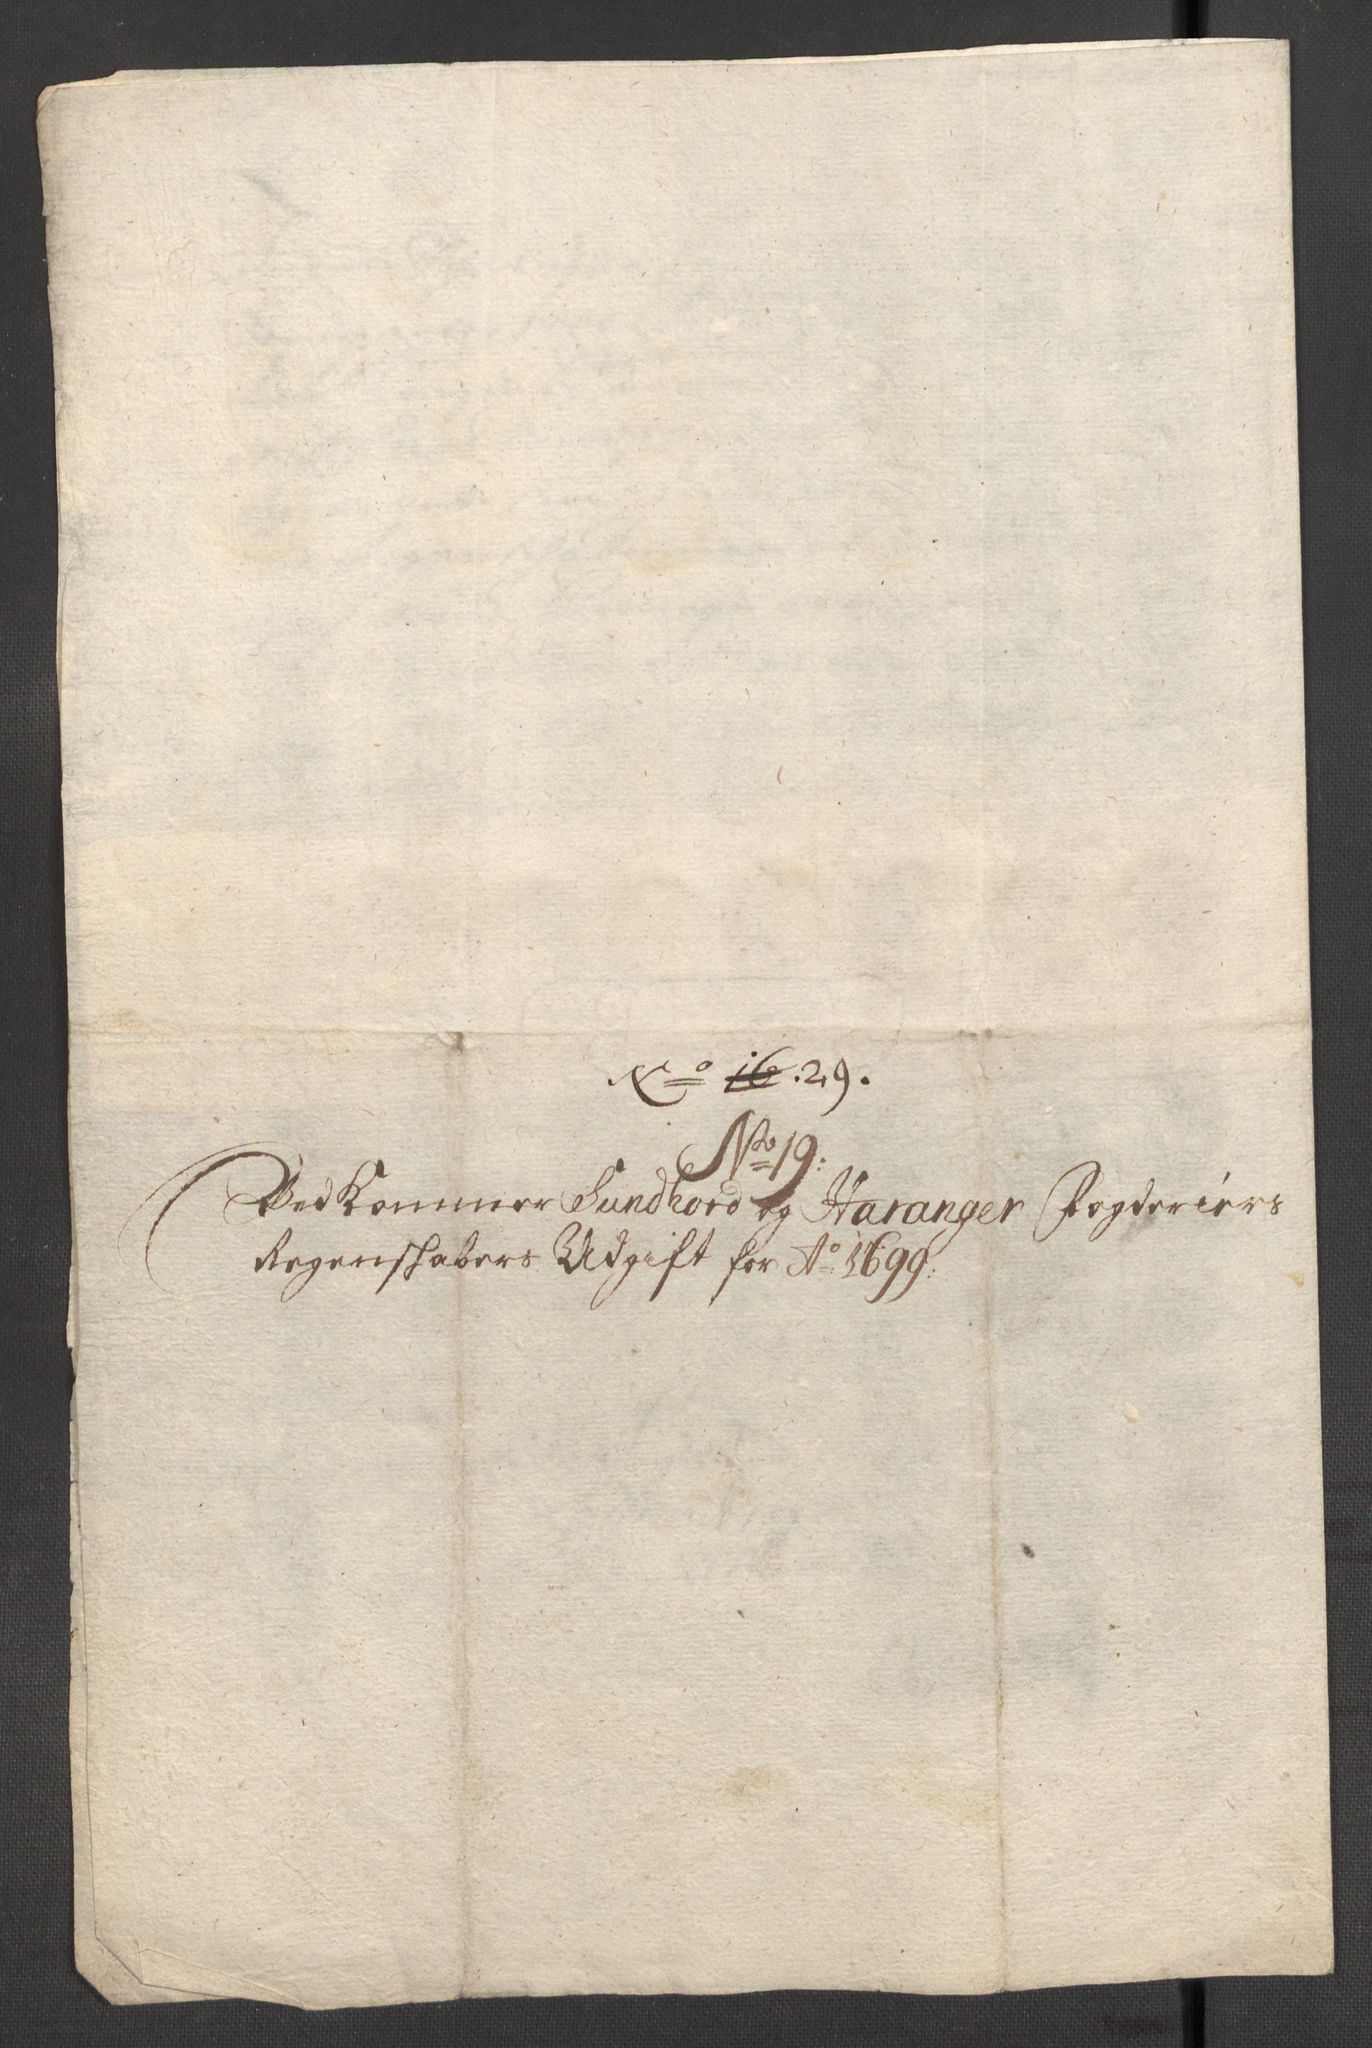 No 16. 29.
No 19:
Ved Kommer Sundhord og Haranger Fogderiers
Regenschabers Udgift for Ao 1699: